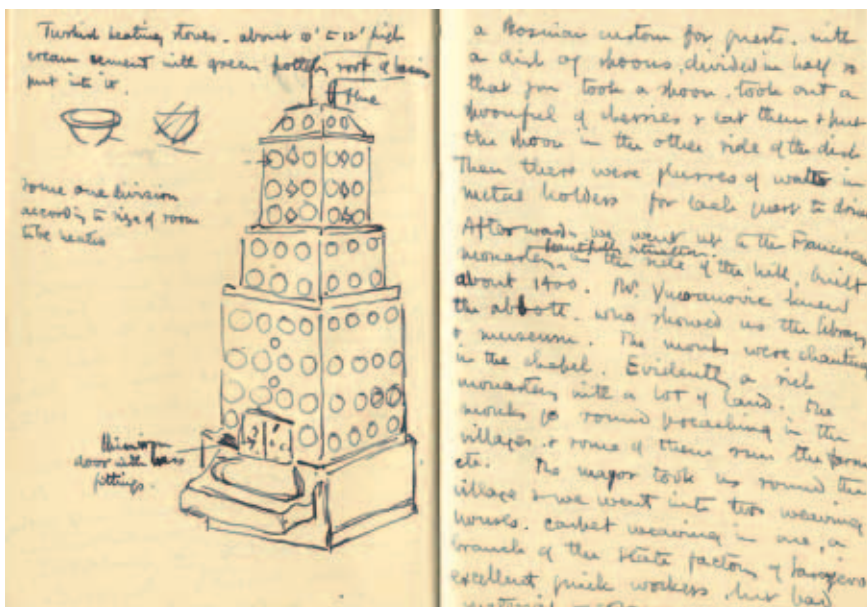 Turkish heating stoves. about 10' to 12' high
cream cement with green pottery sort of basins
put into it.
flue
some one division
according to size of room
to be heated
door with brass
fittings.
a Bosnian custom for guests. with
a dish of spoons, divided in half so
that you took a spoon, took out a
spoonful of cherries & eat them & put
the spoon in the other side of the dish
Then there were glasses of water in
metal holders for each guest to drink
Afterwards we went up to the Franciscan
monastery, beautifully situated. on the side of the hill, built
about 1400. Mr. knew
the abbott. who showed us the library
& museum. The monks were chanting
in the chapel. Evidently a rich
monastery with a lot of land. The
monks go round preaching in the
villages. & some of them run the farm
etc. The major took us round the
village & we went into two weaving
houses. carpet weaving in one, a
branch of the State factory of Sarajevo
excellent quick workers. but bad